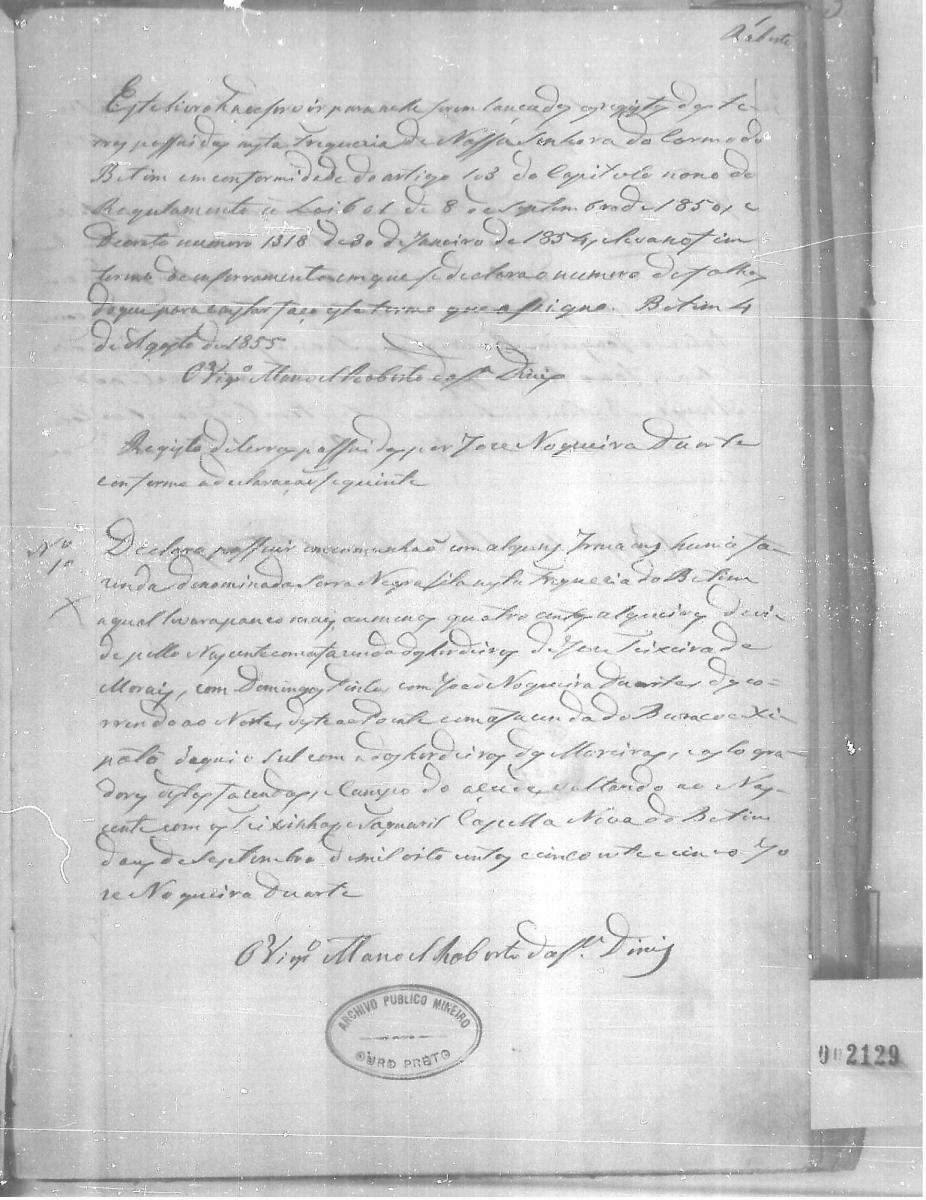 Roberto
Este livro ha de servir para nelle serem lançados os registos das te-
rras possuidas nesta Freguezia de Nossa Senhora do Carmo do
Betim em conformidade do artigo 103 do Capitulo nono do
Regulamento e Lei 601 de 8 de Septembro de 1850, e
Decreto numero 1318 de 30 de Janeiro de 1854, e leva no fim
termo de enserramento em que se declara o numero de folhas
do que para constar faço este termo que assigno. Betim 4
de Agosto de 1855
O Vigro Manoel Roberto da Sa. Diniz
Registo de terras possuidas por Jose Nogueira Duarte
conforme a declaração seguinte
No 1o
Declara possuir em comunhaõ com alguns Irmaons huma fa-
zenda denominada Serra Negra sita nesta Freguezia do Betim
a qual levara pouco mais ou menos quatro centos alqueires devi-
de pello Nascente com a fazenda dos herdeiros de Jose Teixeira de
Morais, com Domingos Pinto, com João Nogueira Duarte, desco-
rrendo ao Norte, deste ao Poente com a fazenda do Buraco e
daqui o sul com a dos herdeiros dos Moreiras,
fazendas, e Campo do voltando ao Nas-
cente com Capella Nova do Betim
de Septembro de mil oito centos e cincoenta e cinco Jo
ze Nogueira Duarte
O Vigro Manoel Roberto da Sa. Diniz
ARCHIVO PUBLICO MINEIRO
OURO PRETO
002129